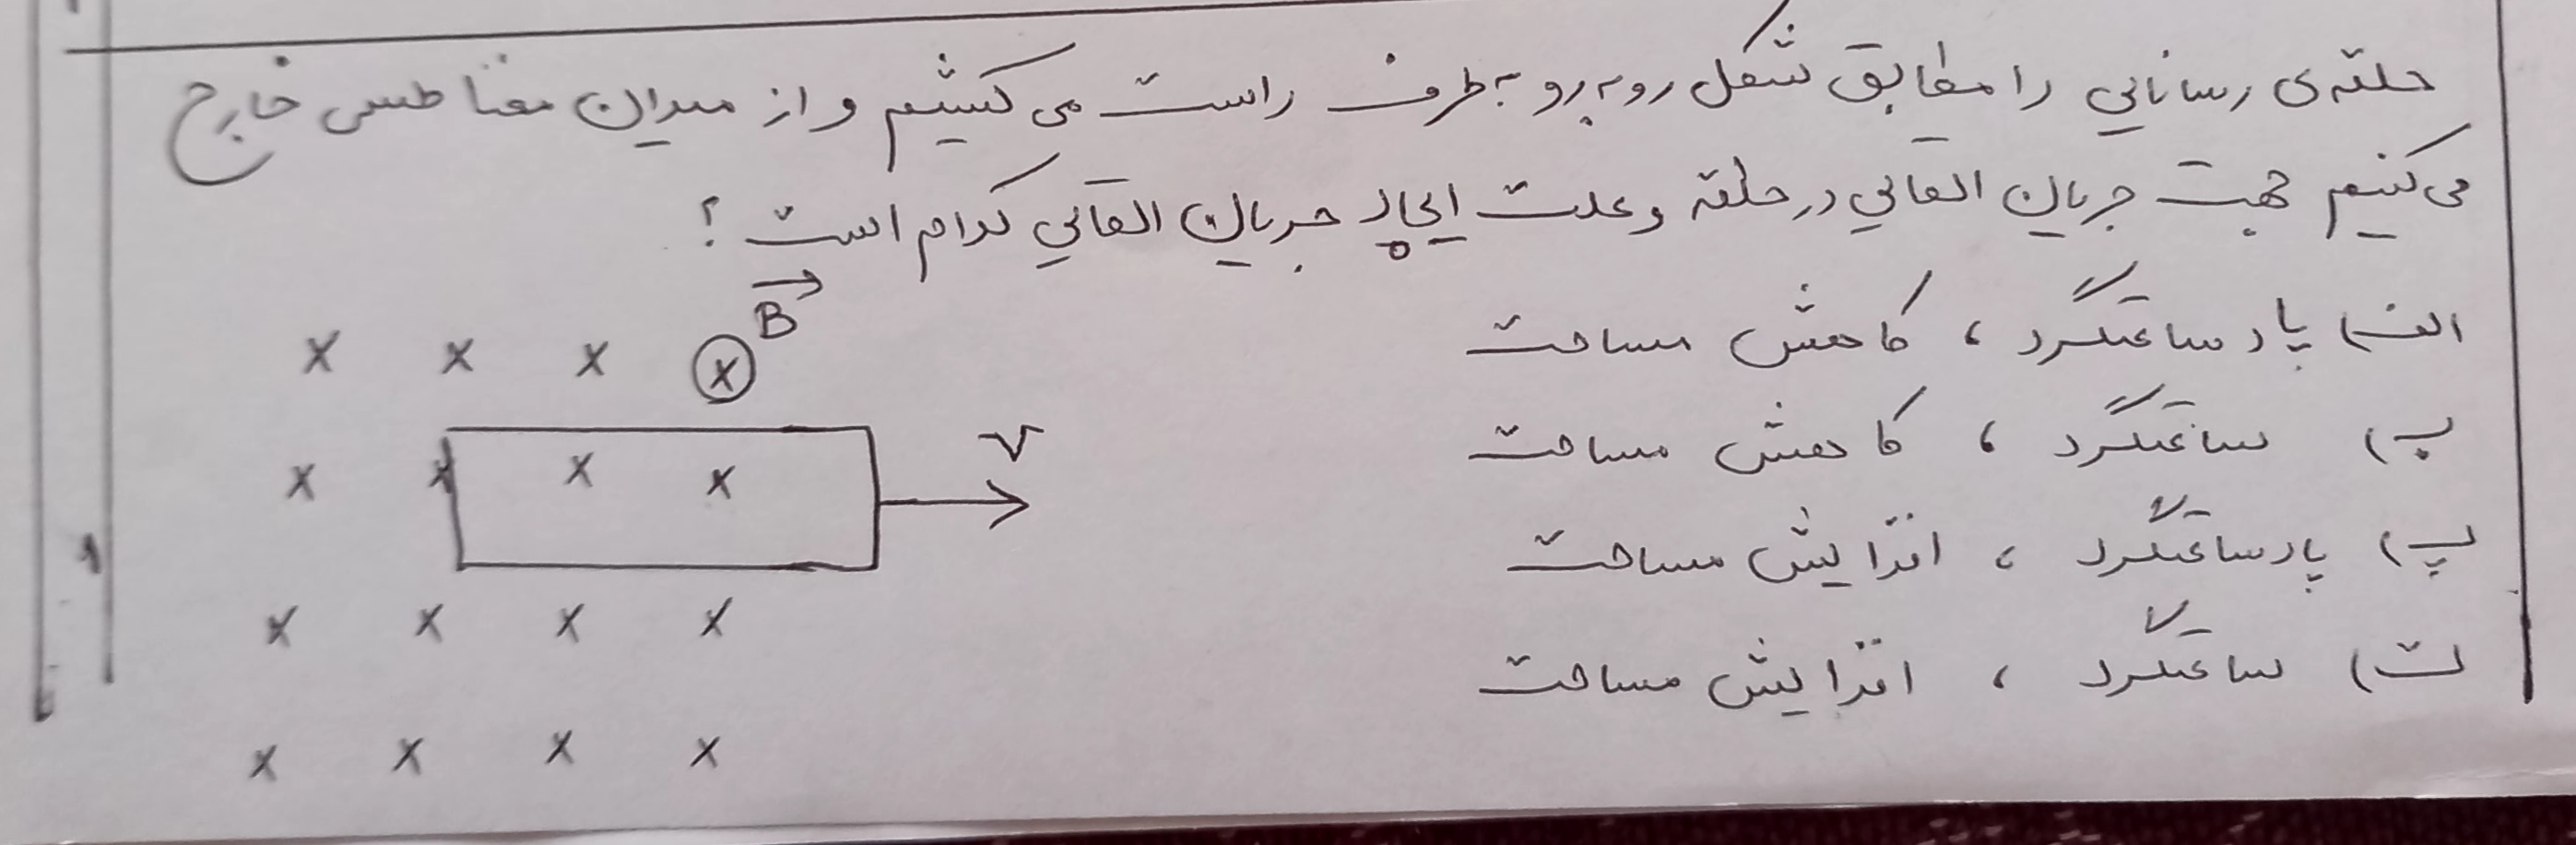 حلقه‌ی رسانایی را مطابق شکل روبه‌رو به طرف راست می‌کشیم و از میدان مغناطیسی خارج
می‌کنیم جهت جریان القایی در حلقه و علت ایجاد جریان القایی کدام است؟
الف) پادساعتگرد، کاهش مساحت
ب) ساعتگرد، کاهش مساحت
پ) پادساعتگرد، افزایش مساحت
ت) ساعتگرد، افزایش مساحت
B
x x x x
x x x x
v
x x x x
x x x x
۱